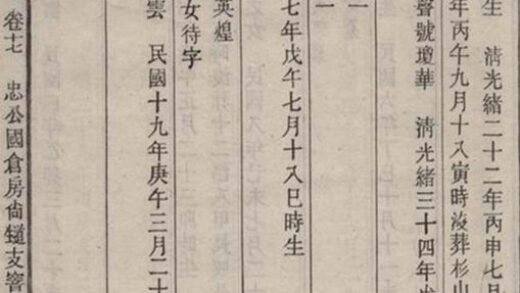 生 清光緒二十二年丙申七月
年丙午九月十八寅時没葬杉山
聲號瓊華 清光緒三十四年
一
一
七年戊午七月十八巳時生
英煌
女待字
雲 民國十九年庚午三月二十
卷十七 忠公國倉房尙鐩支